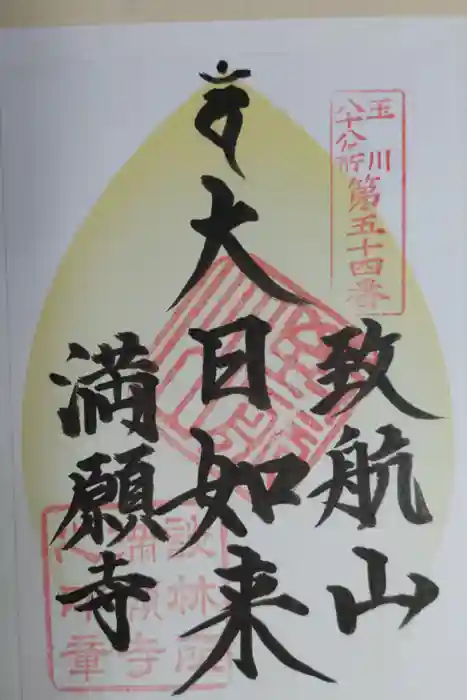 玉川
八十八ヶ所
第五十四番
致航山
大日如来
満願寺